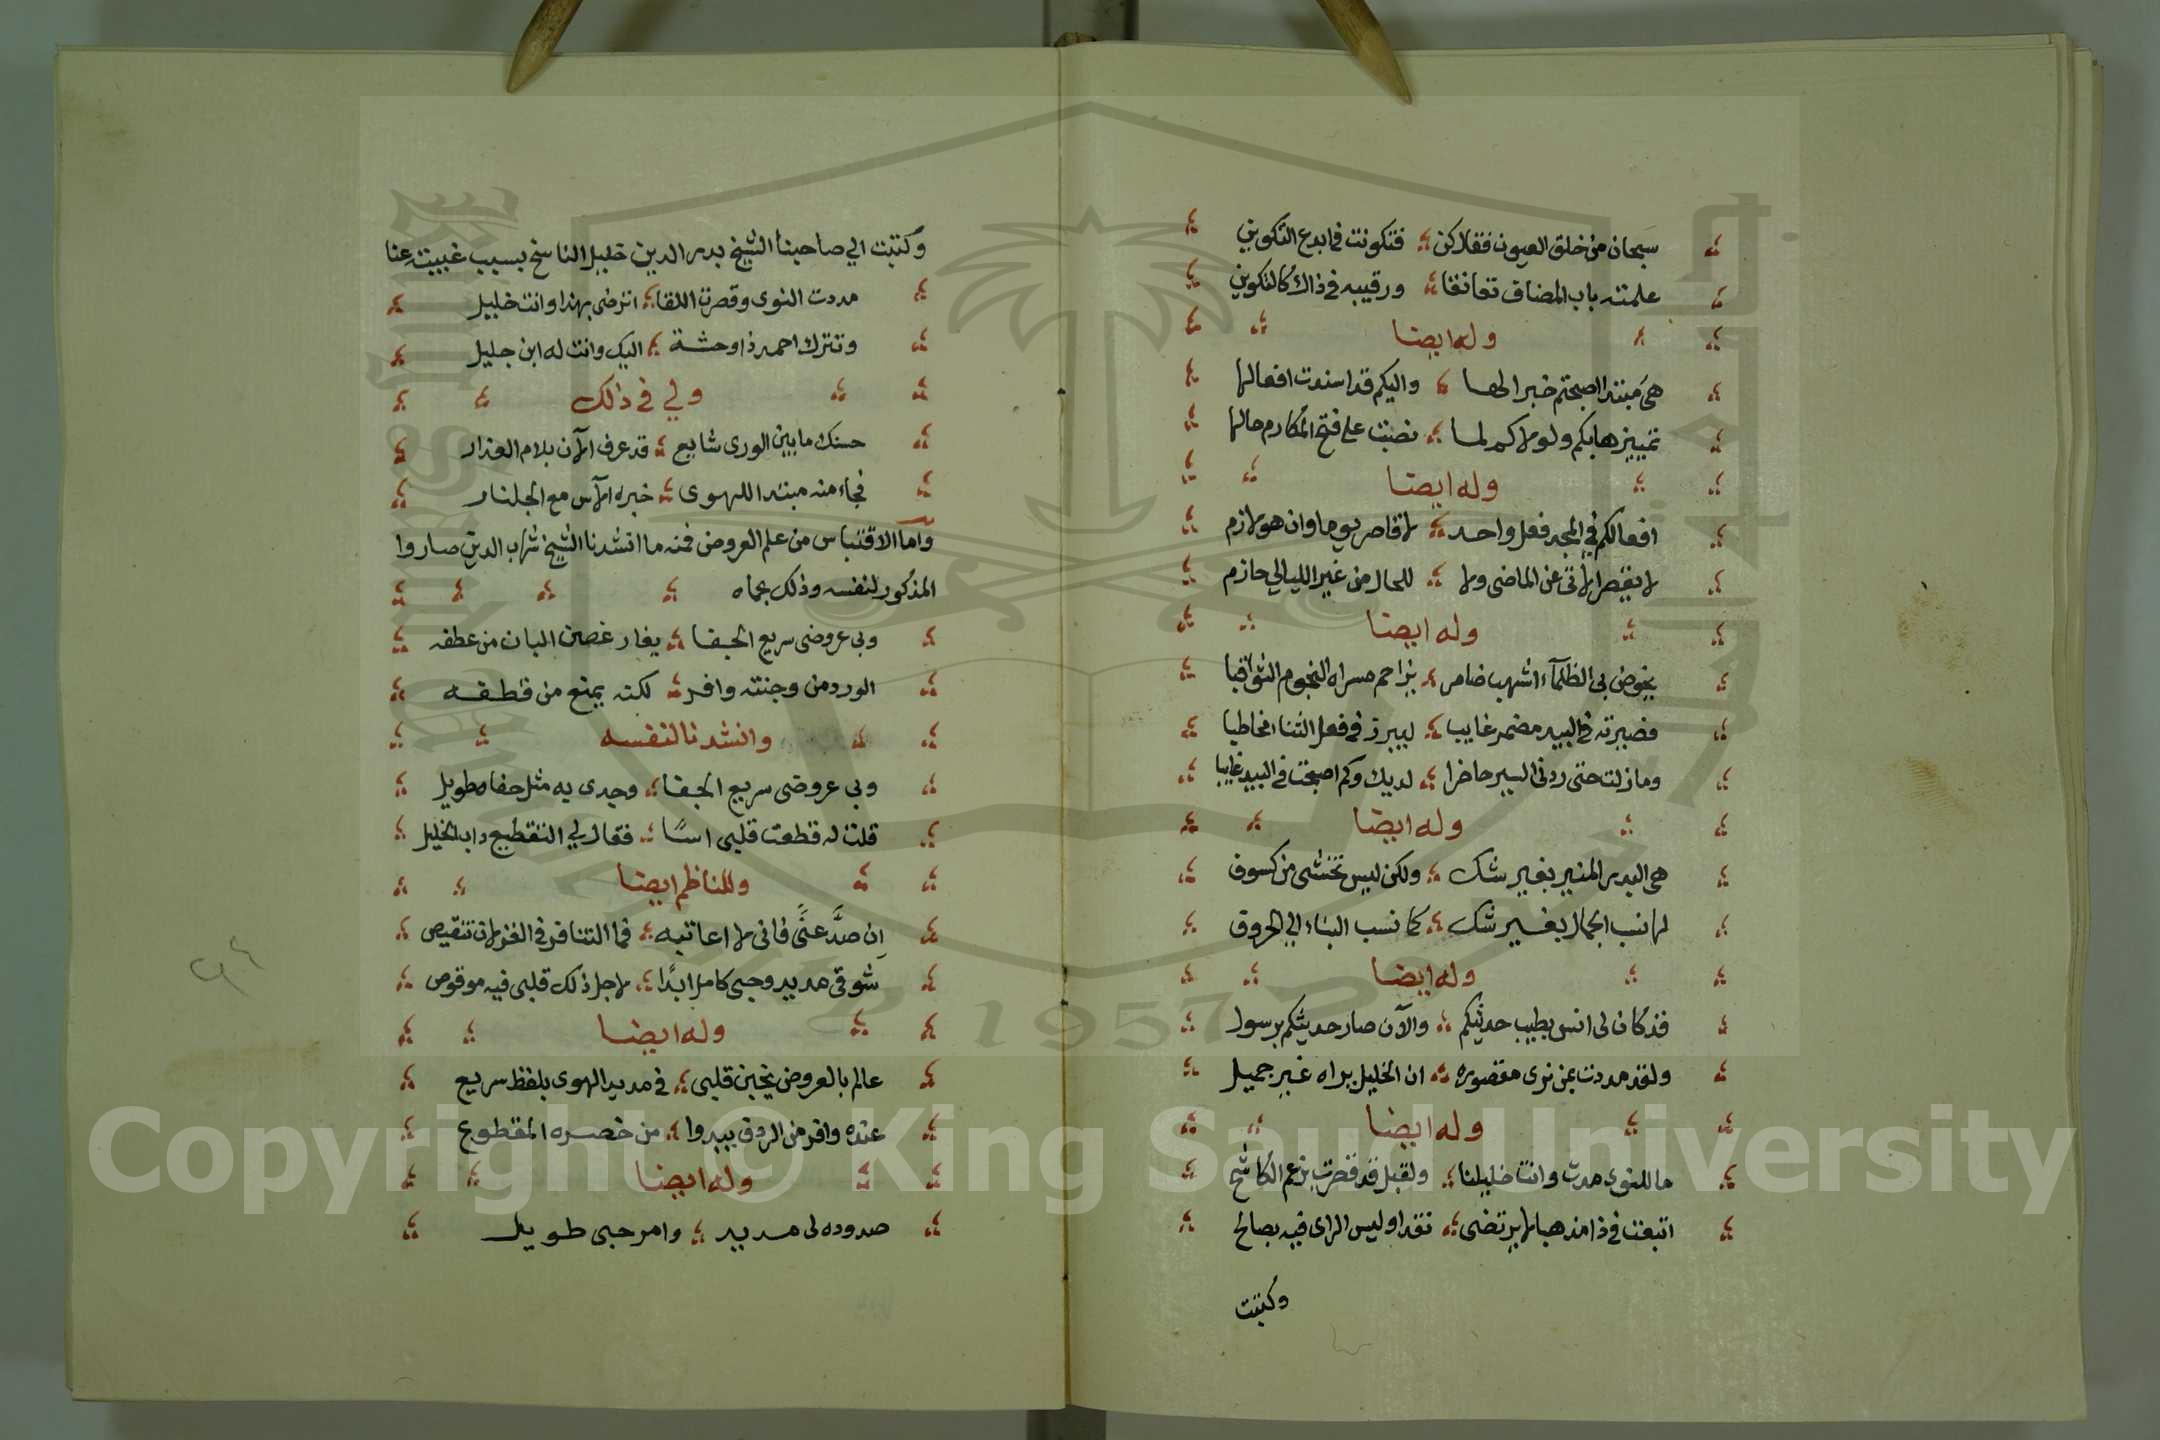 سبحان من خلق العيون فقال كن فتكونت في ابدع التكوين
علمته باب المضاف تعانقا ورقيبه في ذاك كالتكوين
وله ايضا
هي مبتدا اصبحتم خبرا لها واليكم قد اسندت افعالها
تمييزها بكم ولولاكم لما نصبت على فتح المكارم حالها
وله ايضا
افعالكم في المجد فعل واحد لا قاصر يوما وان هو لازم
لا يقيصر الآتي عن الماضي ولا للحال من غير الليالي حازم
وله ايضا
يخوض بي الظلماء اشهب ضامر يزاحم مسراه النجوم الثواقبا
فصيرته في البيد مضمر غايب ليبرز في فعل الثنا مخاطبا
وما زلت حتى ردني السير حاضرا لديك وكم اصبحت في البيد غايبا
وله ايضا
هي البدر المنير بغير شك ولكن ليس تخشى من كسوف
لها نسب الجمال بغير شك كما نسب البناء الى الحروف
وله ايضا
قد كان لي انس بطيب حديثكم والآن صار حديثكم برسول
ولقد مددت من نوى مقصوره ان الخليل يراه غير جميل
وله ايضا
ما للنوى مدت وانت خليلنا ولقبل قد قصرت بزعم الكاشح
اتبعت في ذا مذهبا لا يرتضى نقدا وليس الراى فيه بصالح
وكتبت
وكتبت الي صاحبنا الشيخ بدر الدين خليل الناسخ بسبب غيبته عنا
مددت النوى وقصرت اللقا اترضى بهذا وانت خليل
وتترك احمد ذا وحشة اليك وانت له ابن جليل
ولي في ذلك
حسنك ما بين الورى شايع قد عرف الآن بلام العذار
فجاء منه مبتدا للهوى خبره الآس مع الجلنار
واما الاقتباس من علم العروض فمنه ما انشدنا الشيخ شهاب الدين صاروا
المذكور لنفسه وذلك بحماه
وبي عروضي سريع الجفا يغار غصن البان من عطفه
الورد من وجنته وافر لكنه يمنع من قطفه
وانشدنا لنفسه
وبي عروضي سريع الجفا وجدي به مثل جفاه طويل
قلت له قطعت قلبي اسًا فقال لي التقطيع داب الخليل
وللناظم ايضا
ان صدَّ عنَّي فاني لا اعاتبه فما التنافر في الغزلان تنقيص
شوقي مديد وحبي كامل ابدًا لاجل ذلك قلبي فيه موقوص
وله ايضا
عالم بالعروض يخبن قلبي في مديد الهوى بلفظ سريع
عنده وافر من الردف يبدوا من خصره المقطوع
وله ايضا
صدوده لي مديد وامر حبي طويل
Copyright © King Saud University
1957